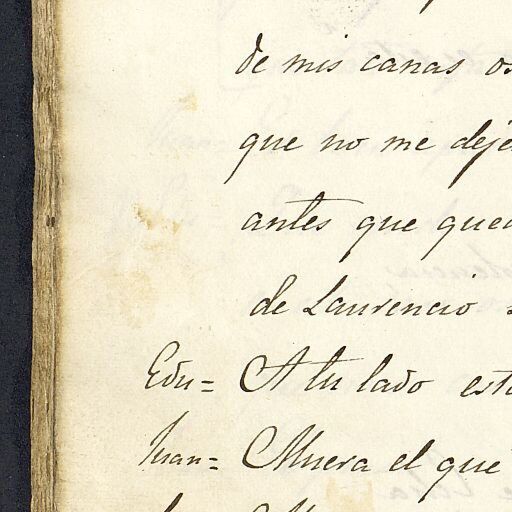 de mis canas os
que no me deje
antes que que
de Laurencio
Edu= A tu lado est
Juan= Muera el que